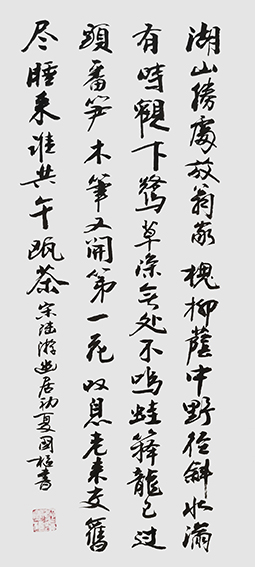 湖山勝處放翁家槐柳蔭中野徑斜水滿
有時觀下鷺草深无处不鸣蛙籜龍已过
頭番笋木筆又開第一花叹息老来交舊
尽睡来誰共午瓯茶宋陆游幽居初夏国書